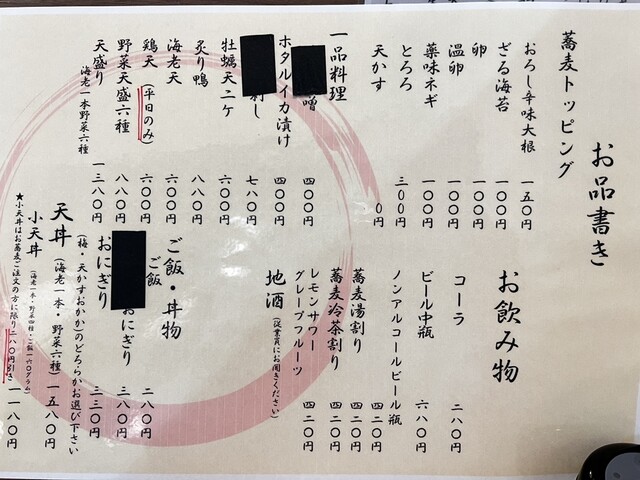 お品書き
蕎麦トッピング
おろし辛味大根 一五〇円
ざる海苔 一〇〇円
卵 一〇〇円
温卵 一〇〇円
薬味ネギ 一〇〇円
とろろ 三〇〇円
天かす 〇円
一品料理
噌 四〇〇円
ホタルイカ漬け 四〇〇円
刺し 七八〇円
牡蠣天二ケ 六〇〇円
炙り鴨 八八〇円
海老天 六〇〇円
鶏天(平日のみ) 六〇〇円
野菜天盛六種 八八〇円
天盛り 一三八〇円
海老一本野菜六種
お飲み物
コーラ 二八〇円
ビール中瓶 六八〇円
ノンアルコールビール瓶 四二〇円
蕎麦湯割り 四二〇円
蕎麦冷茶割り 四二〇円
レモンサワー
グレープフルーツ 四二〇円
地酒(従業員にお聞きください)
ご飯・丼物
ご飯 二八〇円
おにぎり 三八〇円
おにぎり 三三〇円
(梅・天かすおかか)のどちらかお選び下さい
天丼(海老一本・野菜六種) 一五八〇円
小天丼(海老一本・野菜四種・ご飯一六〇グラム) 一一八〇円
★小天丼はお蕎麦ご注文の方に限り二八〇円引き